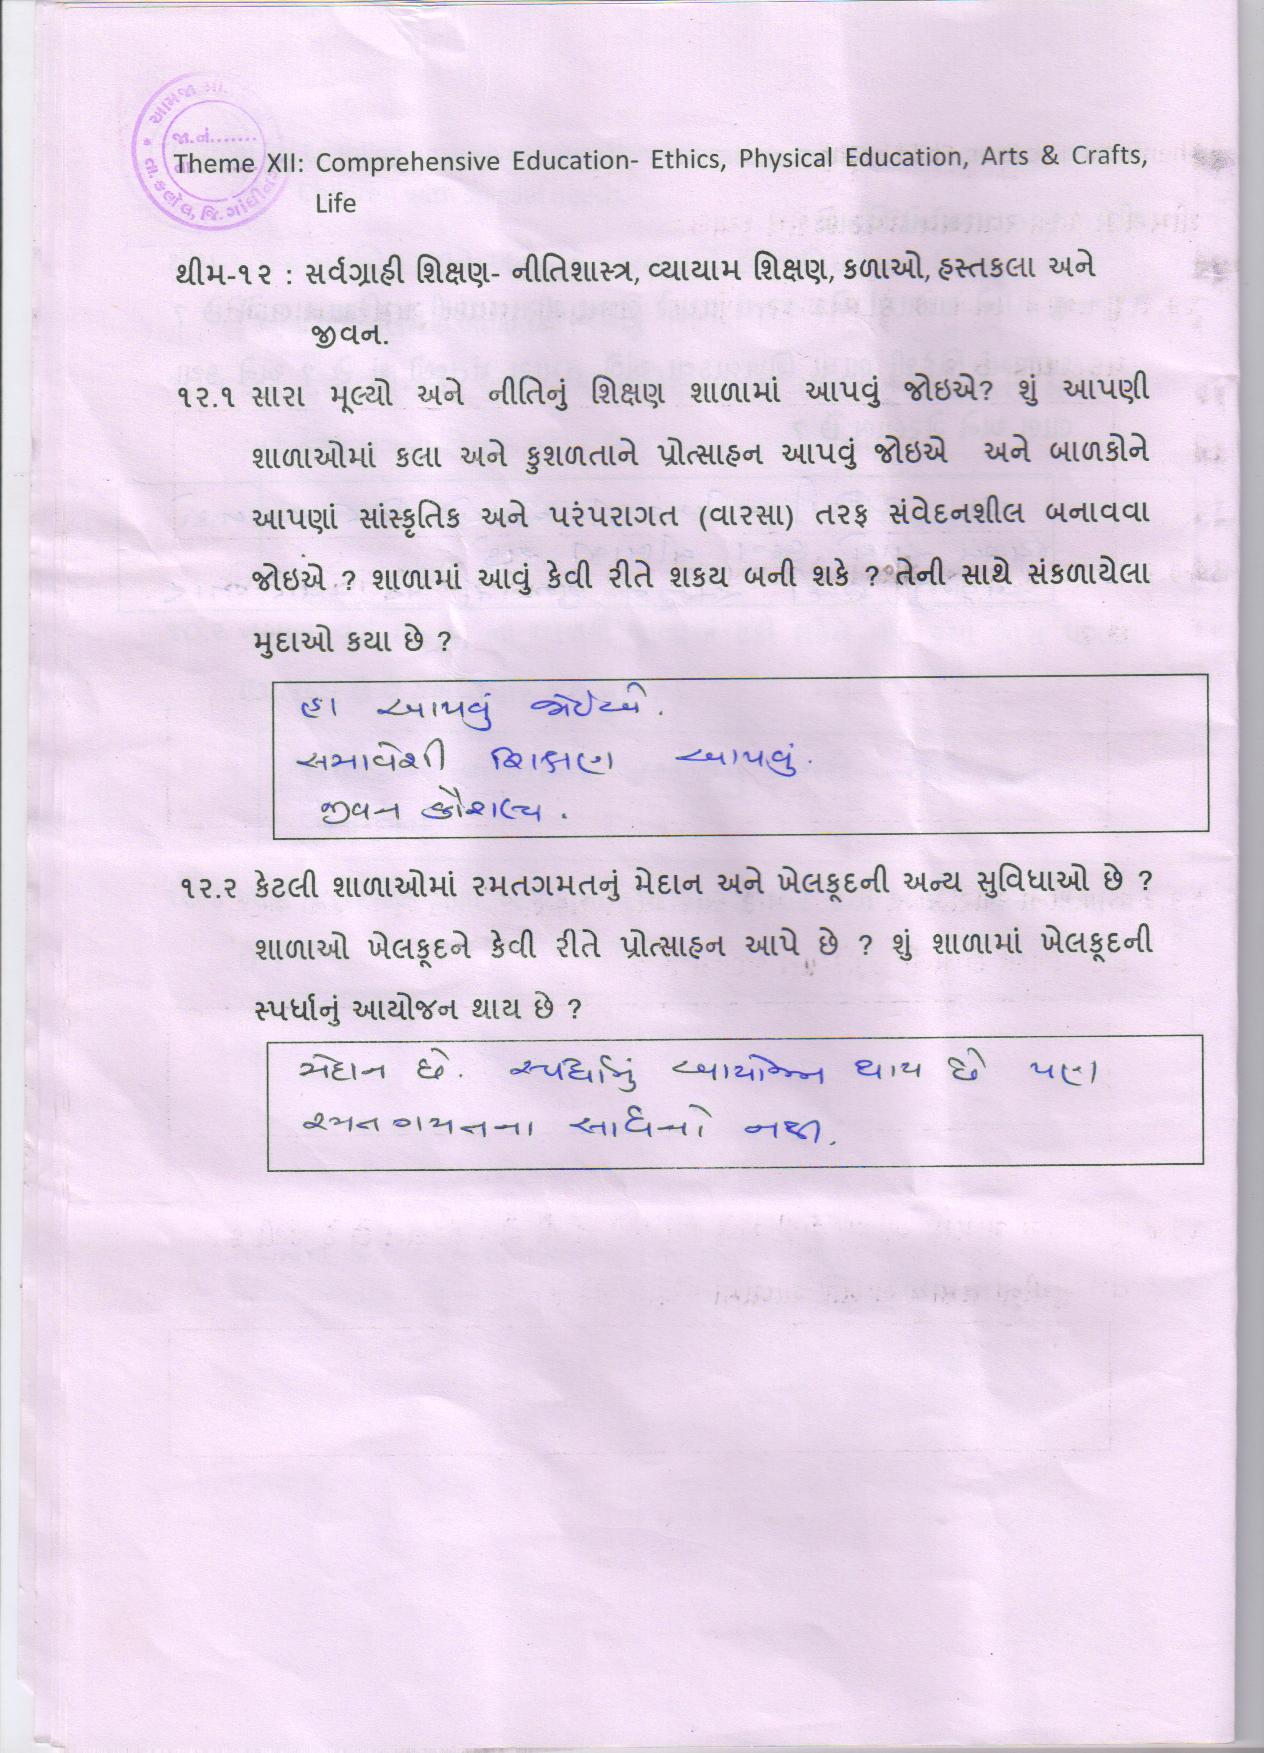 આમજા ગ્રા.
જા.નં.......
તા. કલોલ, જિ. ગાંધીન
Theme XII: Comprehensive Education- Ethics, Physical Education, Arts & Crafts,
Life
થીમ-૧૨ : સર્વગ્રાહી શિક્ષણ- નીતિશાસ્ત્ર, વ્યાયામ શિક્ષણ, કળાઓ, હસ્તકલા અને
જીવન.
૧૨.૧ સારા મૂલ્યો અને નીતિનું શિક્ષણ શાળામાં આપવું જોઇએ? શું આપણી
શાળાઓમાં કલા અને કુશળતાને પ્રોત્સાહન આપવું જોઇએ અને બાળકોને
આપણાં સાંસ્કૃતિક અને પરંપરાગત (વારસા) તરફ સંવેદનશીલ બનાવવા
જોઇએ ? શાળામાં આવું કેવી રીતે શકય બની શકે ? તેની સાથે સંકળાયેલા
મુદાઓ કયા છે ?
હા આપવું જોઈએ.
સમાવેશી શિક્ષણ આપવું.
જીવન કૌશલ્ય.
૧૨.૨ કેટલી શાળાઓમાં રમતગમતનું મેદાન અને ખેલકૂદની અન્ય સુવિધાઓ છે ?
શાળાઓ ખેલકૂદને કેવી રીતે પ્રોત્સાહન આપે છે ? શું શાળામાં ખેલકૂદની
સ્પર્ધાનું આયોજન થાય છે ?
મેદાન છે. સ્પર્ધાનું આયોજન થાય છે પણ
રમતગમતના સાધનો નથી.